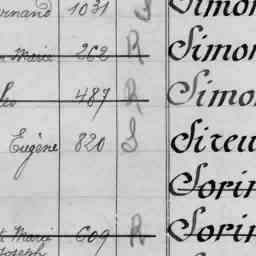 ernand 1031 S Simo
Marie 262 R Simon
les 487 R Simo
Eugène 820 S Sireu
Sorin
Marie 609 R Sorin
Joseph